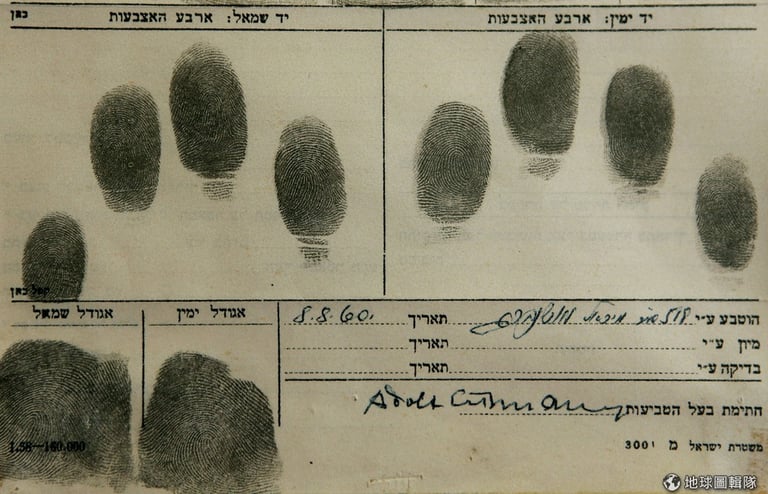 כאן
יד שמאל: ארבע האצבעות
יד ימין: ארבע האצבעות
קפל כאן
אגודל שמאל
אגודל ימין
הוטבע ע"י תאריך 8.8.60.
מיון ע"י תאריך
בדיקה ע"י תאריך
חתימת בעל הטביעות Adolf Eichmann
משטרת ישראל מ 300י
1.58—160.000
地球圖輯隊